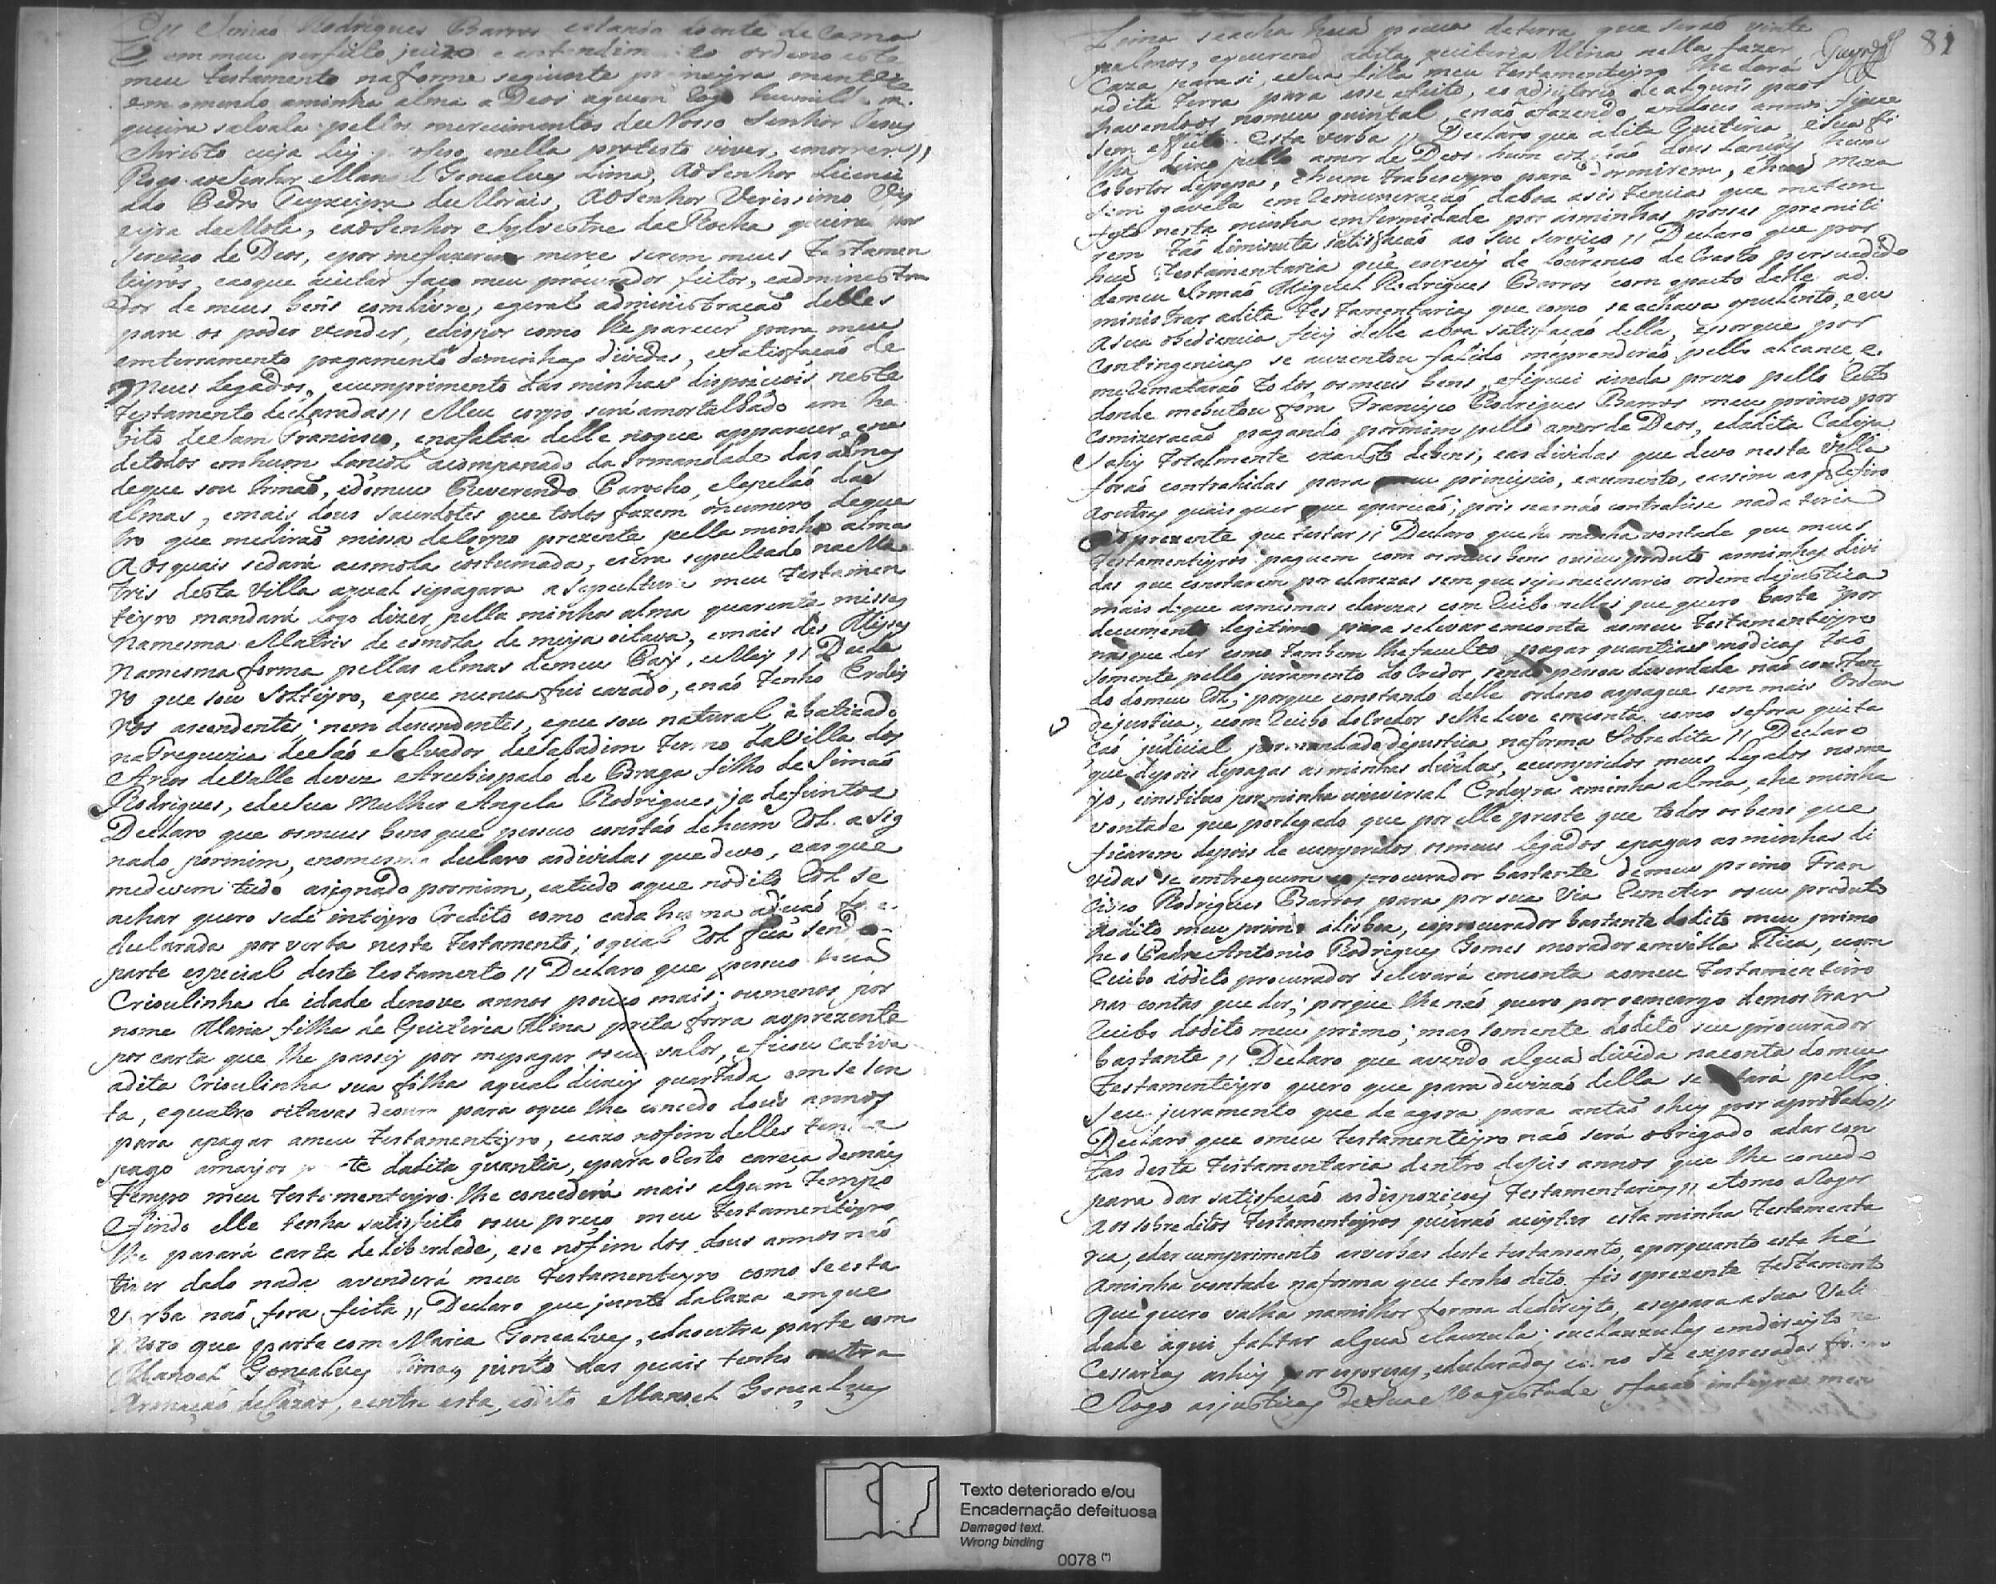 Eu Simaó Rodrigues Barros estando doente de Cama
em meu perfeito juizo e entendim to ordeno este
meu testamento na forma seguinte primeyra mente
emcomendo aminha alma a Deos aquem Rogo humild m.
queira salvala pellos merecimentos de Nosso Senhor Jesus
Christo cuja Ley professo enella protesto viver, emorrer //
Rogo ao Senhor Manoel Goncalves Lima, ao Senhor Licenci
ado Pedro Teyxeyra de Morais, ao Senhor Verissimo Vi
eyra da Mota, eao Senhor Sylvestre da Rocha queiraó por
serviço de Deos, epor mefazerem merce serem meus Testamen
teyros, eaoque aceitar faço meu procurador feitor, eadministra
dor de meus bens comlivre, egeral administraçaó delles
para os poder vender, edispor como lhe parecer, para meu
emterramento pagamento deminhas dividas, esatisfaçaó de
meus Legados, ecumprimento das minhas dispoziçois neste
Testamento declaradas // Meu corpo será amortalhado em ha
bito deSam Francisco, enafalta delle noque apparecer, ene
detodos emhum Lançol acompanado da Irmandade das almas
deque sou Irmaó, edomeu Reverendo Parocho, eCapelaó das
almas, emais dous sacerdotes que todos fazem onumero dequa
tro que mediraó missa deCorpo prezente pella minha alma
Aos quais sedará aesmola costumada, esera sepultado naMa
tris desta Villa aqual sepagara asepultura meu Testamen
teyro mandará logo dizer pella minha alma quarenta missas
Namesma Matris de esmola de meya oitava, emais des Missas
Namesma forma pellas almas demeu Pay, eMay // Decla
ro que sou Solteyro, eque nunca fui cazado, enaó tenho Erdey
ros ascendentes, nem descendentes, eque sou natural, ebatizado
naFreguezia deSaó Salvador deSabadim Termo daVilla dos
Arcos deValle devez Arcebispado de Braga filho de Simaó
Rodrigues, edeSua Mulher Angela Rodrigues ja defuntos
Declaro que osmeus bens que possuo constaó dehum Rol. asig
nado pormim, enomesmo declaro asdividas quedevo, easque
medevem tudo asignado pormim, eatudo oque nodito Rol se
achar quero sedé inteyro Credito como cada hu
declarada por verba neste Testamento; oqual Rol fica sendo
parte especial deste testamento // Declaro que possuo huá
Crioulinha de idade denove annos pouco mais, oumenos por
nome Maria filha de Quiteria Mina preta forra aoprezente
por carta que lhe passey por mepagar oseu valor, eficou cativa
adita Crioulinha sua filha aqual deixey quartada em se sen
ta, equatro oitavas deouro para oque lhe concedo dous annos
para apagar ameu testamenteyro, ecazo nofim delles tenha
pago amayor p te dadita quantia, epara oResto careça demais
tempo meu testamenteyro lhe concederá mais algum tempo
efindo elle tenha satisfeito oseu preço meu testamenteyro
lhe pasará carta deliberdade, ese nofim dos dous annos naó
tiver dado nada avenderá meu testamenteyro como seesta
verba naó fora feita // Declaro que junto daCaza emque
moro que parte com Maria Goncalves, edaoutra parte com
Manoel Gonçalves Lima, junto das quais tenho outra
Armaçaó deCazas, eentre esta, eodito Manoel Gonçalves
81
Lima seacha huá pouca deterra que seraó vinte
palmos, equerend adita quiteria Mina nella fazer
Caza parasi, esua filha meu testamenteyro lhe dará
adita terra para esse efeito, eoadjutorio dealguns paos
havendoos nomeu quintal, enaó afazendo emdous annos fique
sem efeito esta verba // Declaro que adita Quiteria, esua fi
lha deixo pello amor de Deos hum colxaó dous Lançois hum
Cobertor depapa, ehum trabeceyro para dormirem, ehuá Meza
sem gaveta em Remuneraçaó daboa asistencia que metem
feyto nesta minha enfermidade por asminhas posses premiti
rem taó diminuta satisfaçaó ao seu serviço // Declaro que por
huá testamentaria que exerciy de Lourenço deCrasto persuadido
demeu Irmaó Miguel Rodrigues Barros com opacto delle ad
ministrar adita testamentaria, que como seachava opulento, eeu
Asua obediencia fiey delle aboa satisfaçaó della, eporque por
Contingencias se auzentou falido meprenderaó pello alcance e
meRemataraó todos osmeus bens, efiquei ainda prezo pello Resto
donde mebutou fóra Francisco Rodrigues Barros meu primo por
Comizeraçaó pagando pormim pello amor de Deos, edadita Cadeya
Sahy totalmente exausto debens, easdividas que devo nesta Villa
foraó contrahidas para meu principio, eaumento, eassim asprefiro
aoutras quais quer que apareçaó; pois seasnaó contrahise nada teria
aoprezente que testar // Declaro que he minha vontade que meus
testamenteyros paguem com osmeus bens ouseu produto asminhas divi
das que constarem por clarezas sem que seja necessario ordem dejustiça
mais doque asmesmas clarezas com Recibo nellas que quero baste por
documento legitimo para selevar emconta aomeu Testamenteyro
nasque der como tambem lhefaculto pagar quantias modicas taó
somente pello juramento doCredor, sendo pessoa deverdade naó constan
do domeu Rol; porque constando delle ordeno aspague sem mais Ordem
dejustiça, ecom Recibo doCredor selheLeve emconta como sefora quita
çaó judicial por mandado dejustiça naforma Sobredita // Declaro
que depois depagas asminhas dividas, ecumpridos meus Legados nome
yo, einstituo porminha universal Erdeyra aminha alma, ehe minha
vontade que porlegado que por elle preste que todos osbens que
ficarem depois de cumpridos osmeus legados epagas asminhas di
vidas se entreguem ao procurador bastante demeu primo Fran
cisco Rodrigues Barros para por sua via Remeter oseu produto
Aodito meu primo aLisboa, eoprocurador bastante dodito meu primo
he o Padre Antonio Rodrigues Gomes morador emvilla Rica, ecom
Recibo dodito procurador selevará emconta aomeu Testamenteiro
nas contas que der; porque lhe naó quero por oencargo demostrar
Recibo dodito meu primo; mas somente dodito seu procurador
bastante // Declaro que avendo alguá duvida naconta domeu
Testamenteyro quero que para decizaó della se estará pello
Seu juramento que de agora para antaó ohey por aprobado //
Declaro que omeu testamenteyro naó será obrigado adar con
tas desta testamentaria dentro deseis annos que lhe concedo
para dar satisfaçaó asdispoziçoes Testamentarias // etorno aRogar
Aos sobreditos testamenteyros queiraó aceytar esta minha testamenta
ria, edar cumprimento asverbas deste testamento, eporquanto esta hé
Aminha vontade naforma que tenho dito fis oprezente testamento
Que quero valha namilhor forma dedireyto, esepara asua Vali
dade aqui faltar alguá clauzula, ouclauzulas emdireyto ne
cessarias ashey por expressas, edeclaradas como se expresadas
Rogo asjustiças deSua Magestade ofaçaó inteyramen
Texto deteriorado e/ou
Encadernação defeituosa
Damaged text.
Wrong binding
0078 (*)